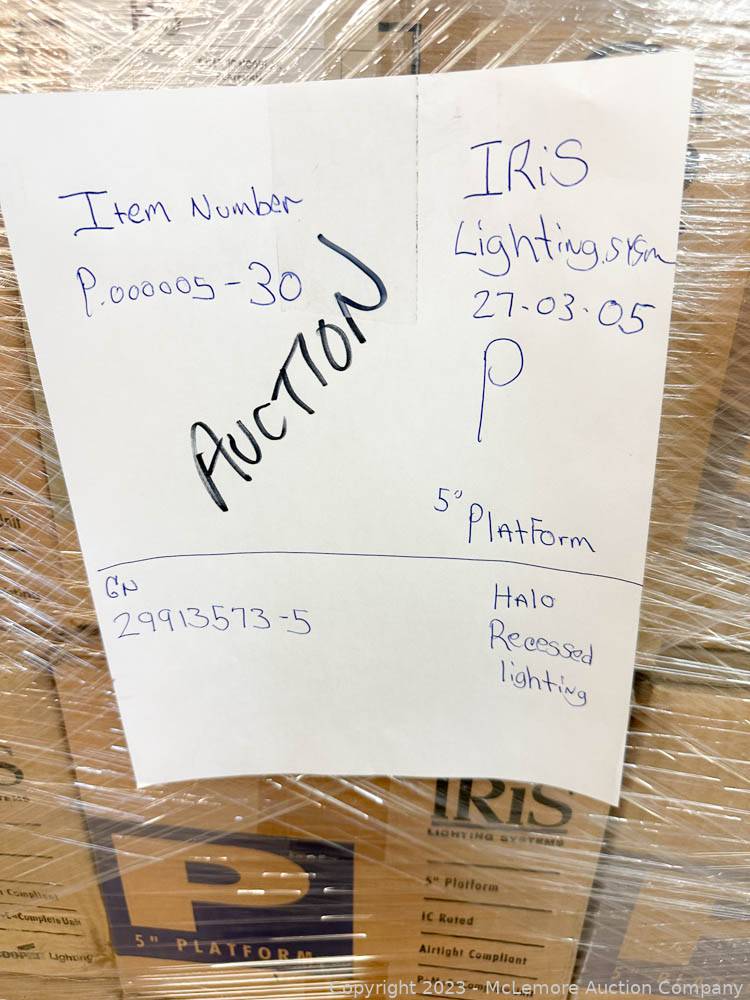 Item Number
P.000005-30
AUCTION
IRiS
Lighting.sysm
27-03-05
P
5" Platform
GN
29913573-5
HAlo
Recessed
lighting
IRiS
LIGHTING SYSTEMS
P
5" PLATFORM
5" Platform
IC Rated
Airtight Compliant
Lighting
Copyright 2023 - McLemore Auction Company